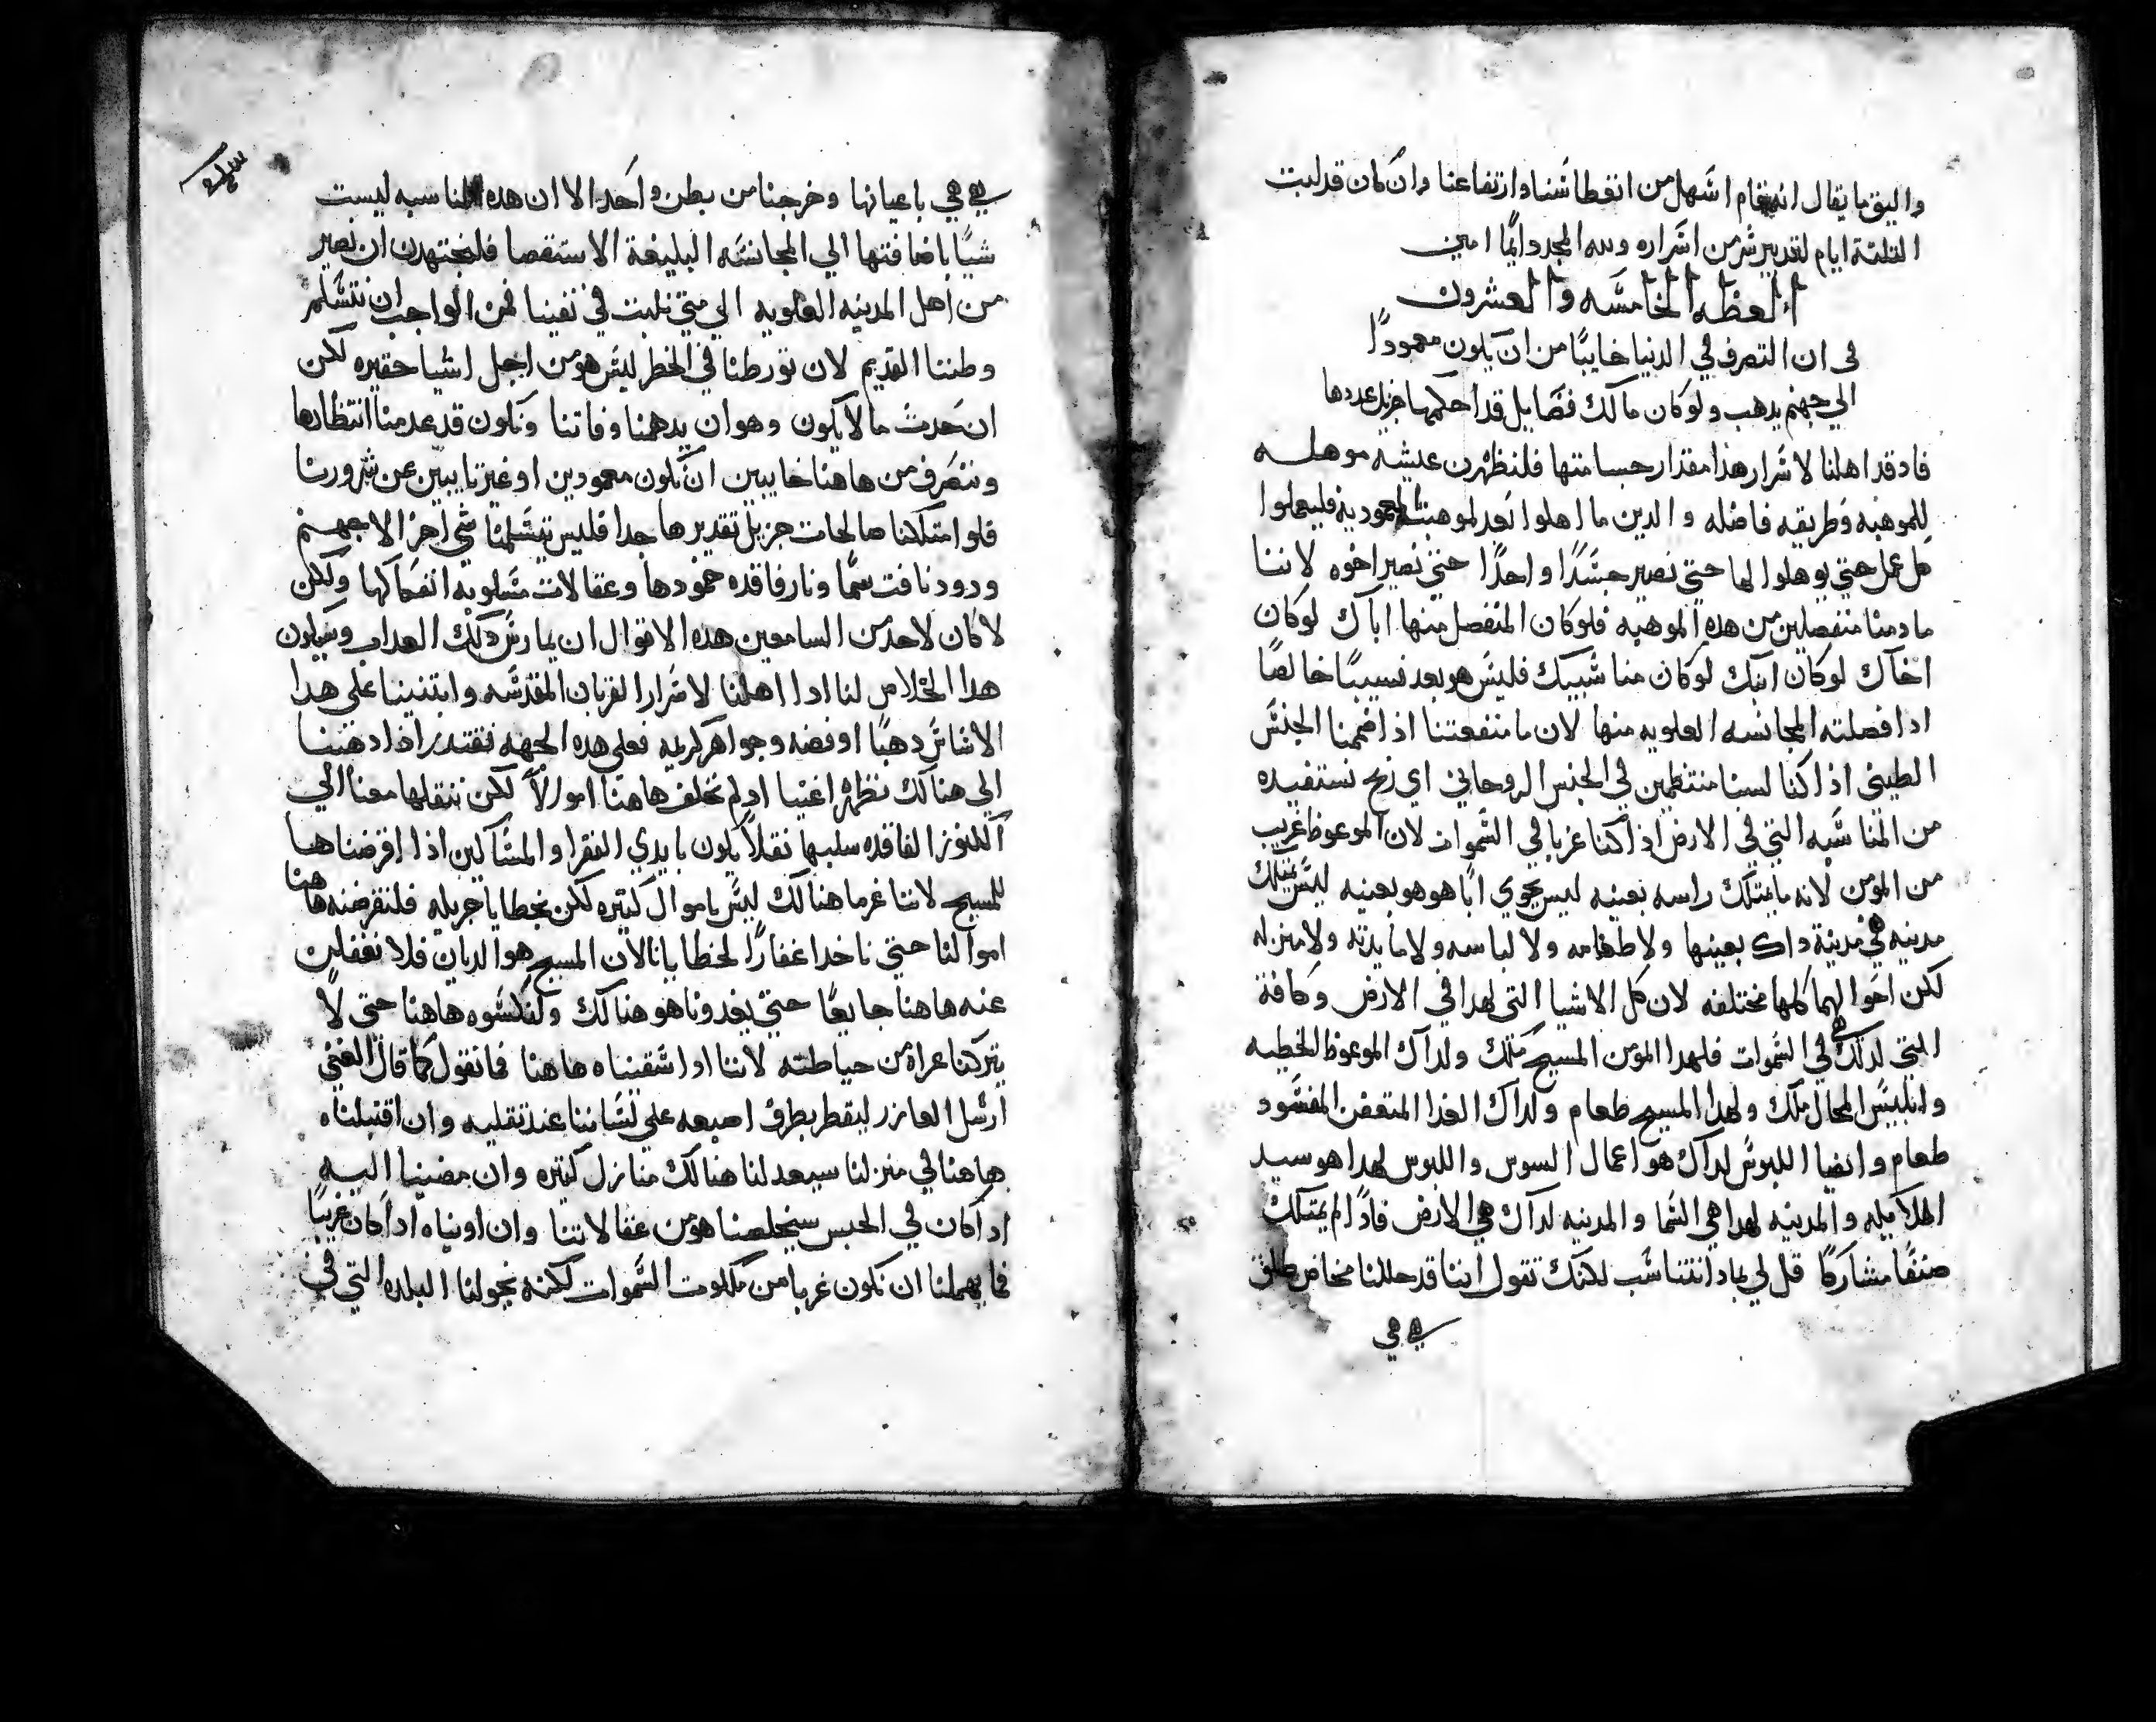 واليق ما يقال انه يقام اسهل من انغطاسنا وارتفاعنا وان كان قد لبت
التلتة ايام لتدبير شر من اسراره ولله المجد دايمًا امين
العظه الخامسه والعشرون
في ان التصرف في الدنيا خايبًا من ان يكون معمودًا
الي جهنم يدهب ولو كان مالك فضايل قد احكمها جزيل عددها
فاد قد اهلنا لاسرار هذا مقدار جسامتها فلنظهرن عيشه موهله
للموهبه وطريقه فاضله والدين ما اهلوا بعد لموهبة المعموديه فليعملوا
كل عمل حتي يوهلوا لها حتي نصير جسدًا واحدًا حتي نصير اخوه لاننا
ما دمنا منفصلين من هده الموهبه فلو كان المنفصل منها اباك لو كان
اخاك لو كان ابنك لو كان مناسبيك فليس هو بعد نسيبًا خالصًا
ادا فصلته المجانسه العلويه منها لان ما منفعتنا اذ اضمنا الجنس
الطيني اذا كنا لسنا منتظمين في الجنس الروحاني اي ربح نستفيده
من المناسبه التي في الارض اذا كنا غربا في السموات لان الموعوظ غريب
من المومن لانه ما يمتلك راسه بعينه ليس يحوي ابًا هو هو بعينه ليس يمتلك
مدينه هي مدينة داك بعينها ولا طعامه ولا لباسه ولا مايدته ولا منزله
لكن احوالهما كلها مختلفه لان كل الاشيا التي لهدا في الارض وكافة
التي لدلك هي في السموات فلهدا المومن المسيح ملك ولداك الموعوظ الخطيه
وابليس المحال ملك ولهدا المسيح طعام ولداك الغدا المتعفن المفسود
طعام وايضا اللبوس لداك هو اعمال السوس واللبوس لهدا هو سيد
الملايكه والمدينه لهدا هي السما والمدينه لداك هي الارض فادًا لم يمتلك
صنفًا مشاركًا قل لي بماد انتناسب لكنك تقول اننا قد حللنا مخاض طلق
هي هي
هي هي باعيانها وخرجنا من بطن واحد الا ان هده المناسبه ليست
شيًا باضافتها الي المجانسه البليغة الاستقصا فلنجتهدن ان نصير
من اهل المدينه العلويه الي متي نلبت في نفينا فمن الواجب ان نتسلم
وطننا القديم لان تورطنا في الخطر ليس هو من اجل اشيا حقيره لكن
ان حدث ما لا يكون وهو ان يدهمنا وفاتنا ونكون قد عدمنا انتظارها
وننصرف من هاهنا خايبين ان نكون معمودين او غير تايبين عن شرورنا
فلو امتلكنا صالحات جزيل تقديرها جدا فليس يتسلمنا شي اخر الا جهنم
ودود نافت سمًا ونار فاقده خمودها وعقالات مسلوبه انفكاكها ولكن
لا كان لاحد من السامعين هده الاقوال ان يمارس دلك العداب وسيكون
هدا الخلاص لنا ادا اهلنا لاسرار القربان المقدسه وابتنينا علي هدا
الاساس دهبًا او فضه وجواهر كريمه فعلي هده الجهه نقتدر اذا دهبنا
الي هنالك نظهر اغنيا اد لم نخلف هاهنا اموالاً لكن ننقلها معنا الي
الكنوز الفاقده سلبها نقلاً يكون بايدي الفقرا والمساكين اذا اقرضناها
للمسيح لاننا غرما هنالك ليس باموال كتيره لكن بخطايا جزيله فلنقرضنه هاهنا
اموالنا حتي ناخد اغفارًا لخطايانا لان المسيح هو الديان فلا نغفلن
عنه هاهنا جايعًا حتي يغدونا هو هنالك ولنكسوه هاهنا حتي لا
يتركنا عراة من حياطته لاننا ادا سقيناه هاهنا فما نقول كما قال الغني
ارسل العازر ليقطر بطرف اصبعه علي لساننا عند تقليه وان اقتبلناه
هاهنا في منزلنا سيعد لنا هنالك منازل كتيره وان مضينا اليه
اد اكان في الحبس سيخلصنا هو من عقالاتنا وان اويناه اد اكان غريبًا
فما يهملنا ان نكون غربا من ملكوت السموات لكنه يخولنا البلده التي في